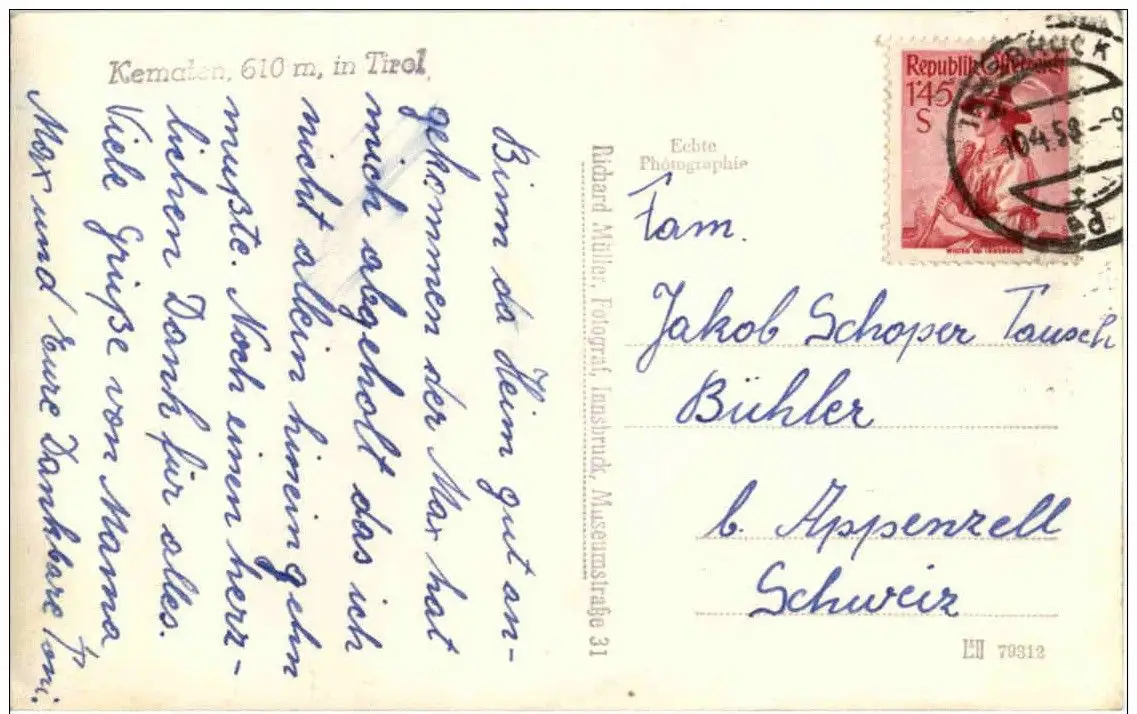 Kematen, 610 m, in Tirol
Binn da Heim gut an-
gekommen der Max hat
mich abgeholt das ich
nicht allein hineingehn
mußte. Noch einen herz-
lichen Dank für alles.
Viele Grüße von Mama
Max und Eure Dankbare Toni.
Richard Müller, Fotograf, Innsbruck, Museumstraße 31
Echte
Photographie
Republik Österreich
1'45
S
INNSBRUCK
10.4.58
Fam.
Jakob Schoper Tausch
Bühler
b. Appenzell
Schweiz
79312